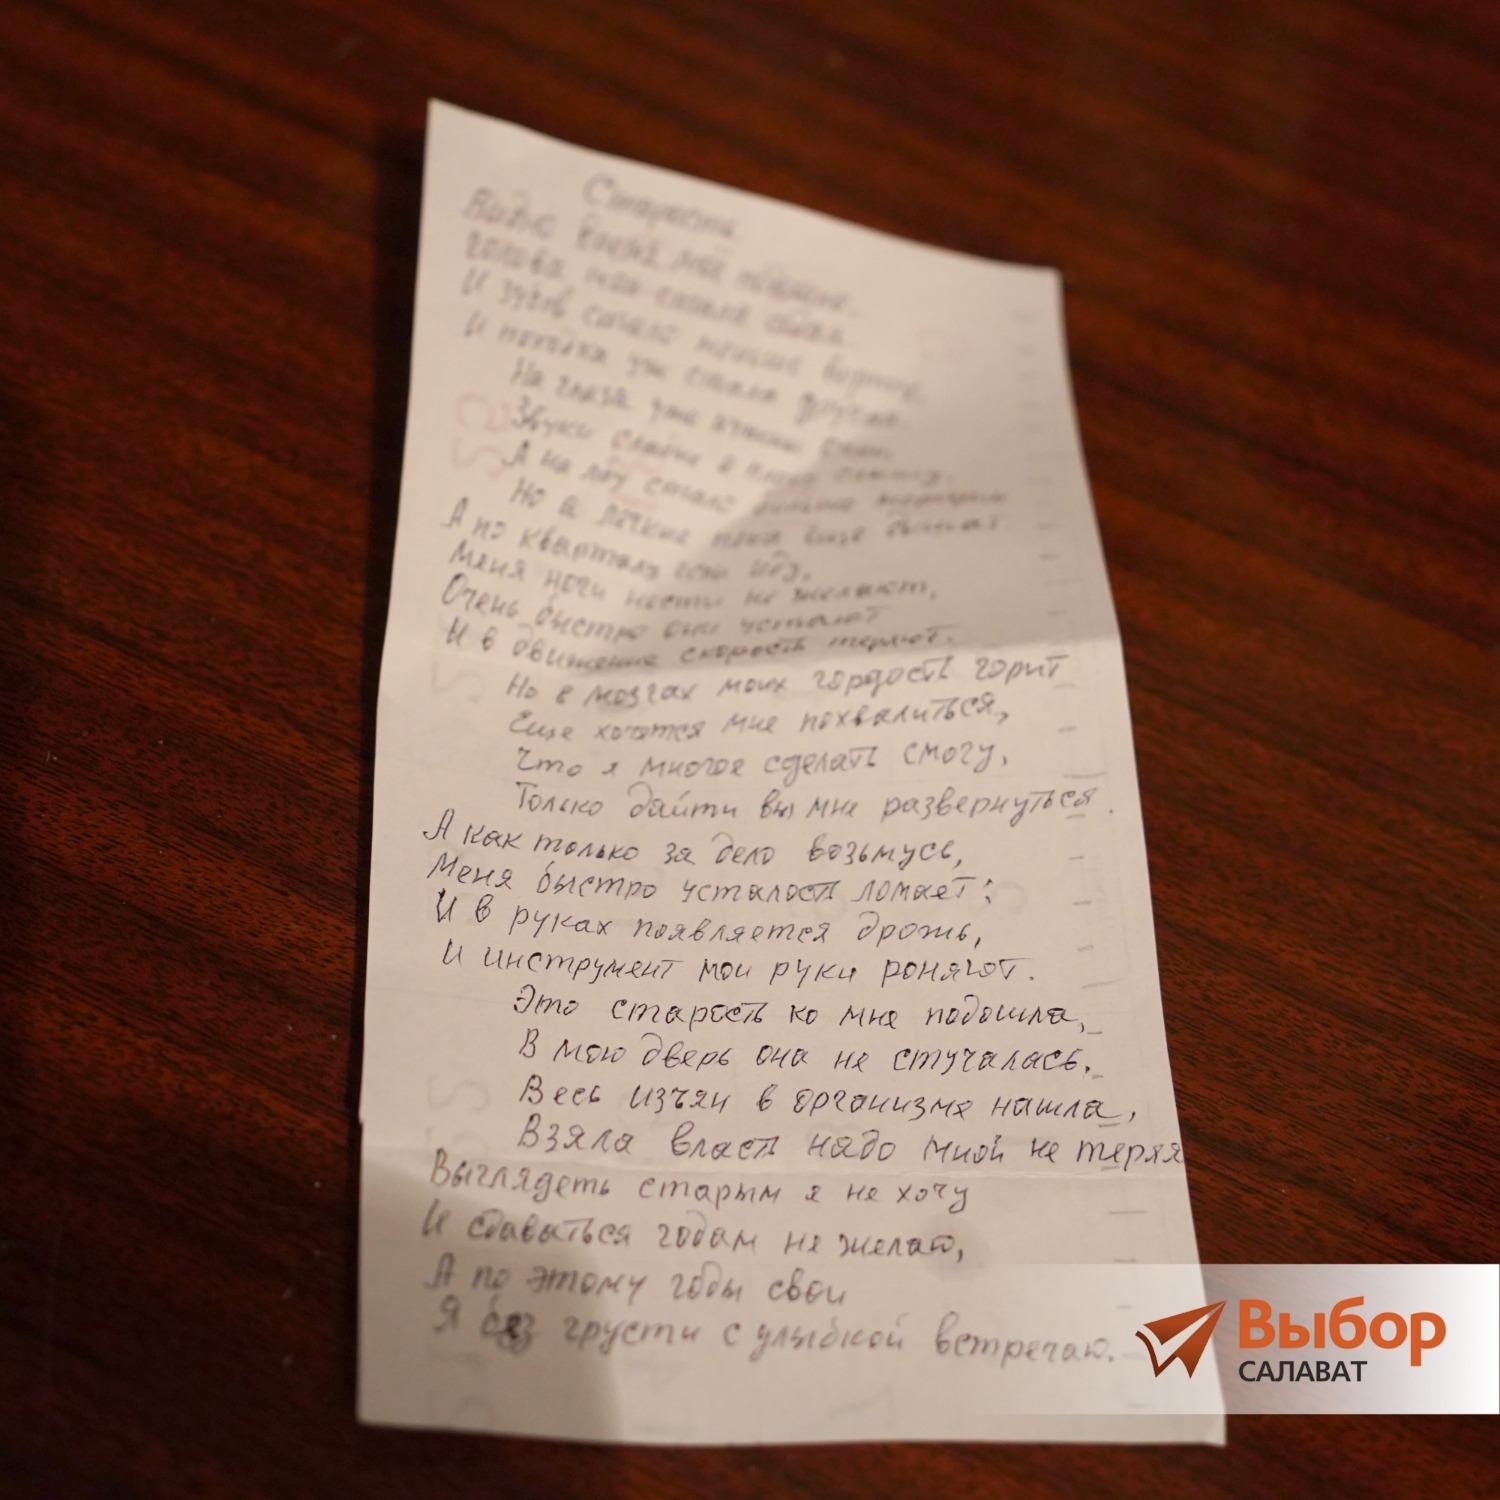 Старость
Видно время моё
голова моя стала седая
И зубов стало меньше
И походка уж стала другая
На глаза уже
Звуки слабые я плохо слышу.
А на лбу стало больше морщин
Но а лёгкие пока еще дышат
А по кварталу если иду,
Меня ноги нести не желают,
Очень быстро они устают
И в движение скорость теряют.
Но в мозгах моих гордость горит
Еще хочется мне похвалиться,
Что я многое сделать смогу,
Только дайти вы мне развернуться.
А как только за дело возьмусь,
Меня быстро усталость ломает;
И в руках появляется дрожь,
И инструмент мои руки роняют.
Это старость ко мне подошла,
В мою дверь она не стучалась.
Весь изъян в организме нашла,
Взяла власть надо мной не теряя
Выглядеть старым я не хочу
И сдаваться годам не желаю,
А по этому годы свои
Я без грусти с улыбкой встречаю.
Выбор
САЛАВАТ